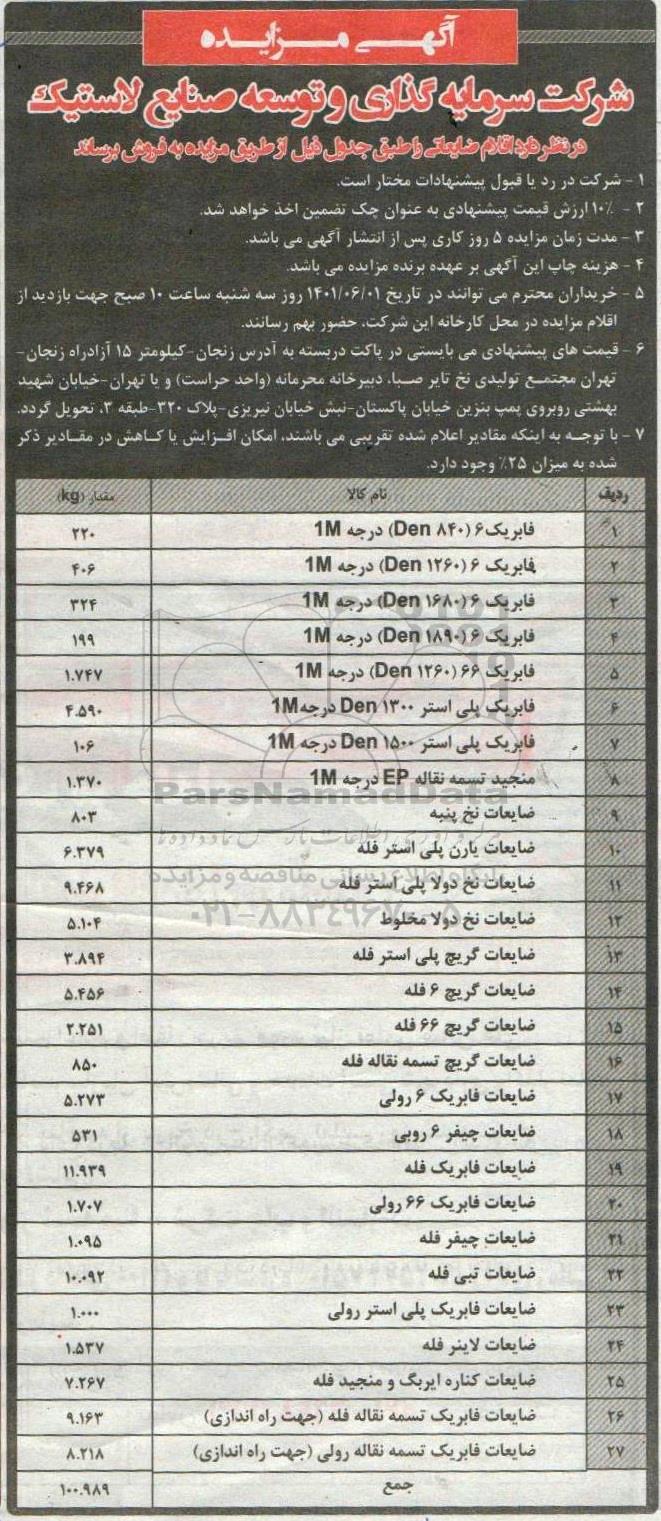 آگهی مزایده
شرکت سرمایه گذاری و توسعه صنایع لاستیک
در نظر دارد اقلام ضایعاتی را طبق جدول ذیل از طریق مزایده به فروش برساند
۱ - شرکت در رد یا قبول پیشنهادات مختار است.
۲ - ۱۰٪ ارزش قیمت پیشنهادی به عنوان چک تضمین اخذ خواهد شد.
۳ - مدت زمان مزایده ۵ روز کاری پس از انتشار آگهی می باشد.
۴ - هزینه چاپ این آگهی بر عهده برنده مزایده می باشد.
۵ - خریداران محترم می توانند در تاریخ ۱۴۰۱/۰۶/۰۱ روز سه شنبه ساعت ۱۰ صبح جهت بازدید از
اقلام مزایده در محل کارخانه این شرکت، حضور بهم رسانند.
۶ - قیمت های پیشنهادی می بایستی در پاکت دربسته به آدرس زنجان-کیلومتر ۱۵ آزادراه زنجان-
تهران مجتمع تولیدی نخ تایر صبا، دبیرخانه محرمانه (واحد حراست) و یا تهران-خیابان شهید
بهشتی روبروی پمپ بنزین خیابان پاکستان-نبش خیابان نیریزی-پلاک ۳۲۰-طبقه ۳، تحویل گردد.
۷ - با توجه به اینکه مقادیر اعلام شده تقریبی می باشند، امکان افزایش یا کاهش در مقادیر ذکر
شده به میزان ۲۵٪ وجود دارد.
ردیف نام کالا مقدار (kg)
۱ فابریک۶ (۸۴۰ Den) درجه 1M ۲۲۰
۲ فابریک ۶ (۱۲۶۰ Den) درجه 1M ۴۰۶
۳ فابریک ۶ (۱۶۸۰ Den) درجه 1M ۳۲۴
۴ فابریک ۶ (۱۸۹۰ Den) درجه 1M ۱۹۹
۵ فابریک ۶۶ (۱۲۶۰ Den) درجه 1M ۱.۷۴۷
۶ فابریک پلی استر ۱۳۰۰ Den درجه1M ۴.۵۹۰
۷ فابریک پلی استر ۱۵۰۰ Den درجه 1M ۱۰۶
۸ منجید تسمه نقاله EP درجه 1M ۱.۳۷۰
۹ ضایعات نخ پنبه ۸۰۳
۱۰ ضایعات یارن پلی استر فله ۶.۳۷۹
۱۱ ضایعات نخ دولا پلی استر فله ۹.۴۶۸
۱۲ ضایعات نخ دولا مخلوط ۵.۱۰۴
۱۳ ضایعات گریچ پلی استر فله ۳.۸۹۴
۱۴ ضایعات گریچ ۶ فله ۵.۴۵۶
۱۵ ضایعات گریچ ۶۶ فله ۲.۲۵۱
۱۶ ضایعات گریچ تسمه نقاله فله ۸۵۰
۱۷ ضایعات فابریک ۶ رولی ۵.۲۷۳
۱۸ ضایعات چیفر ۶ روبی ۵۳۱
۱۹ ضایعات فابریک فله ۱۱.۹۳۹
۲۰ ضایعات فابریک ۶۶ رولی ۱.۷۰۷
۲۱ ضایعات چیفر فله ۱.۰۹۵
۲۲ ضایعات تبی فله ۱۰.۰۹۲
۲۳ ضایعات فابریک پلی استر رولی ۱.۰۰۰
۲۴ ضایعات لاینر فله ۱.۵۳۷
۲۵ ضایعات کناره ایربگ و منجید فله ۷.۲۶۷
۲۶ ضایعات فابریک تسمه نقاله فله (جهت راه اندازی) ۹.۱۶۳
۲۷ ضایعات فابریک تسمه نقاله رولی (جهت راه اندازی) ۸.۲۱۸
جمع ۱۰۰.۹۸۹
ParsNamadData
پایگاه اطلاع رسانی مناقصه و مزایده
۰۲۱-۸۸۳۴۹۶۷۰-۵